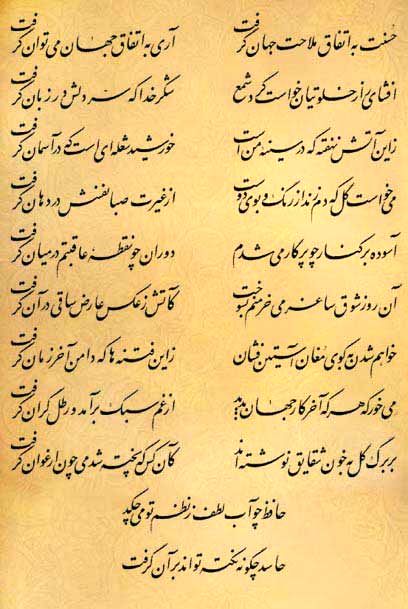 حسنت به اتفاق ملاحت جهان گرفت آری به اتفاق جهان می توان گرفت
افشای راز خلوتیان خواست کرد شمع شکر خدا که سر دلش در زبان گرفت
زاین آتش نهفته که در سینه من است خورشید شعله ای است که در آسمان گرفت
می خواست گل که دم زند از رنگ و بوی دوست از غیرت صبا نفسش در دهان گرفت
آسوده بر کنار چو پرگار می شدم دوران چو نقطه عاقبتم در میان گرفت
آن روز شوق ساغر می خرمنم بسوخت کآتش ز عکس عارض ساقی در آن گرفت
خواهم شدن به کوی مغان آستین فشان زاین فتنه ها که دامن آخر زمان گرفت
می خور که هر که آخر کار جهان بدید از غم سبک برآمد و رطل گران گرفت
بر برگ گل به خون شقایق نوشته اند کآن کس که پخته شد می چون ارغوان گرفت
حافظ چو آب لطف ز نظم تو می چکد
حاسد چگونه نکته تواند بر آن گرفت